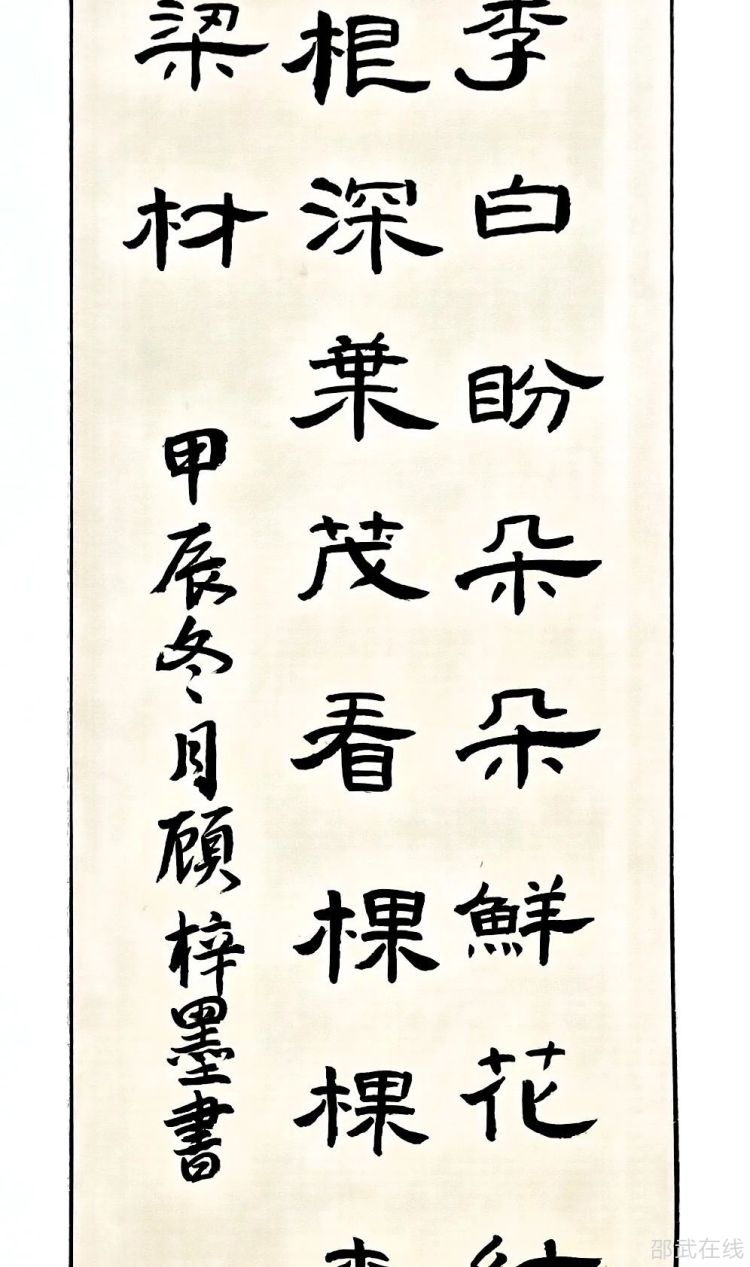 李白盼朵朵鮮花
根深葉茂看棵棵
梁材
甲辰冬月顾梓墨書
邵武在线